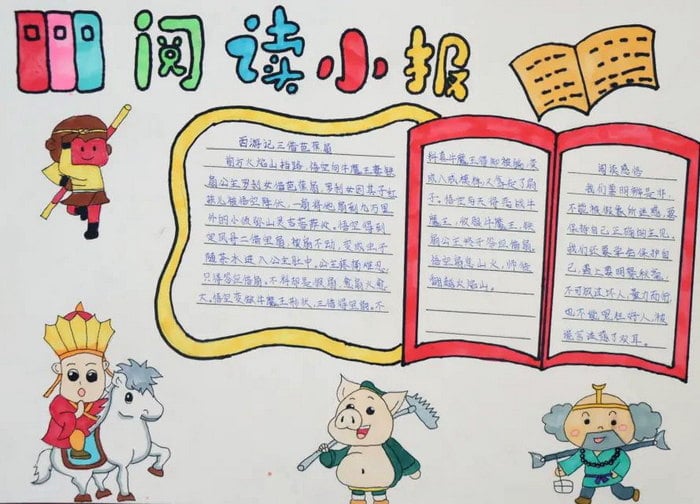 阅读小报
西游记三借芭蕉扇
前方火焰山挡路,悟空向牛魔王妻铁
扇公主罗刹女借芭蕉扇。罗刹女因其子红
孩儿被悟空降伏,一扇将他扇到几万里
外的小须弥山灵吉菩萨处。悟空得到
定风丹二借宝扇,被扇不动,变成虫子
随茶水进入公主肚中。公主疼痛难忍,
只得答应借扇。不料却是假扇,愈扇火愈
大。悟空变做牛魔王形状,三借得宝扇。不
料真牛魔王得知被骗,变
成八戒模样,又骗走了扇
子。悟空与天将合战牛
魔王,收服牛魔王,铁
扇公主终于答应借扇。
悟空扇息山火,师徒
翻越火焰山。
阅读感悟
我们要明辨是非,
不能被假象所迷惑,要
保持自己正确的主见。
我们还要学会保护自
己,遇上要明察秋毫,
不可放过坏人,量力而行
也不能冤枉好人,被
谎言迷 了双耳。